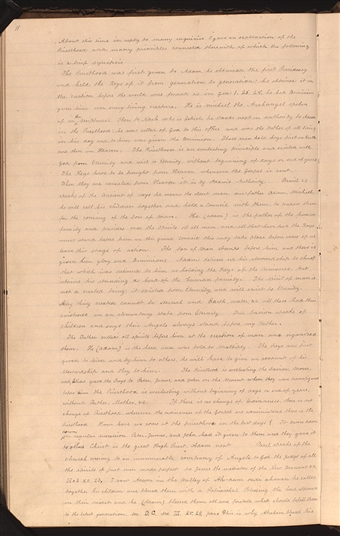 About this time in reply to many inquiries I gave an explanation of the
Priesthood and many principles connected therewith of which the following
is a brief synopsis
The Priesthood was first given to Adam, he obtained the first Presidency
and held the Keys of it from generation to generation; he obtained it in
the creation before the world was formed as in Gen 1. 26, 28, he had Dominion
given him over every living creature. He is Michael the Archangel spoken
of in the Scriptures. Then to Noah who is Gabriel, he stands next in authority to Adam
in the Priesthood; he was called of God to this office and was the Father of all living
in his day, and to him was given the Dominion. These men held keys first on earth
and then in Heaven. The Priesthood is an everlasting principle and existed with
God from Eternity and will to Eternity, without beginning of days or end of years.
The Keys have to be brought from Heaven whenever the Gospel is sent.
When they are revealed from Heaven it is by Adam's Authority. Daniel 7
speaks of the Ancient of days, he means the oldest man, our Father Adam, Michael;
he will call his children together, and hold a Council with them to prepare them
for the coming of the Son of Man. He (Adam) is the father of the human
family and presides over the Spirits of all men, and all that have had the Keys
must stand before him in this grand Council this may take place before some of us
leave this stage of action. The Son of Man stands before him and there is
given him glory and Dominion. Adam delivers up his stewardship to Christ
that which was delivered to him as holding the Keys of the Universe, but
retains his standing as head of the human family. The Spirit of man is
not a created being; it existed from Eternity and will exist to Eternity.
Any thing created cannot be eternal and Earth, water, &c all these had their
existence in an elementary state from Eternity. Our Savior speaks of
children and says their Angels always stand before my Father.
The Father called all spirits before him at the creation of man and organized
them. He (Adam) is the head, was told to multiply. The Keys were first
given to him, and by him to others, he will have to give an account of his
stewardship, and they to him. The Priesthood is everlasting the Savior, Moses
and Elias gave the Keys to Peter, James, and John on the Mount when they were transfigured
before him. The Priesthood is everlasting without beginning of days or end of years,
without Father, Mother, &c. If there is no change of ordinances there is no
change of Priesthood. Wherever the ordinances of the Gospel are administered there is the
Priesthood. How have we come at the priesthood in the last days? It came down
in regular succession. Peter, James, and John had it given to them and they gave it
to others. Christ is the great High Priest; Adam next. Paul speaks of the
church coming to an innumerable company of Angels to God the Judge of all
the spirits of just men made perfect to Jesus the mediator of the New Covenant &c.
Heb. 12. 23. I saw Adam in the valley of Ahdam ondi ahman he called
together his children and blessed them with a Patriarchal Blessing. The Lord appeared
in their midst, and he (Adam) blessed them all and foretold what should befall them
to the latest generation see D. C. sec III. 28, 29 par. This is why Abraham blessed his